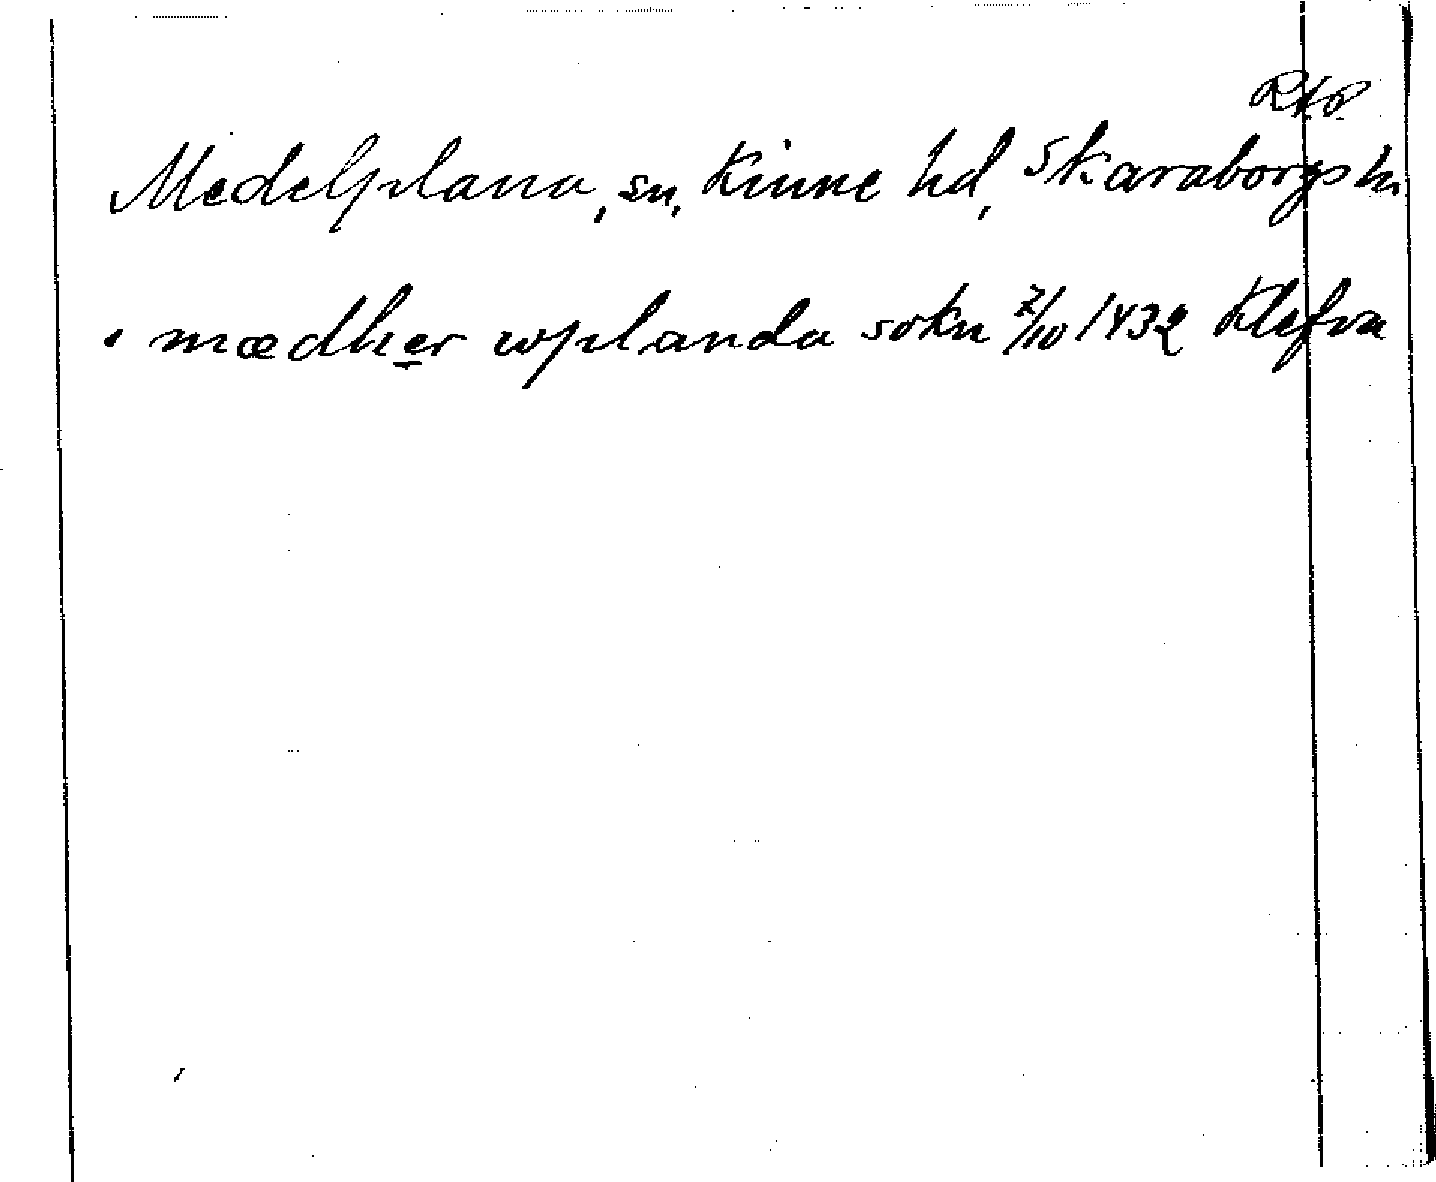 RAP
Medelplana, sn, Kinne hd, Skaraborgs ln
i mædher wplanda sokn 2/10 1432 Klefva